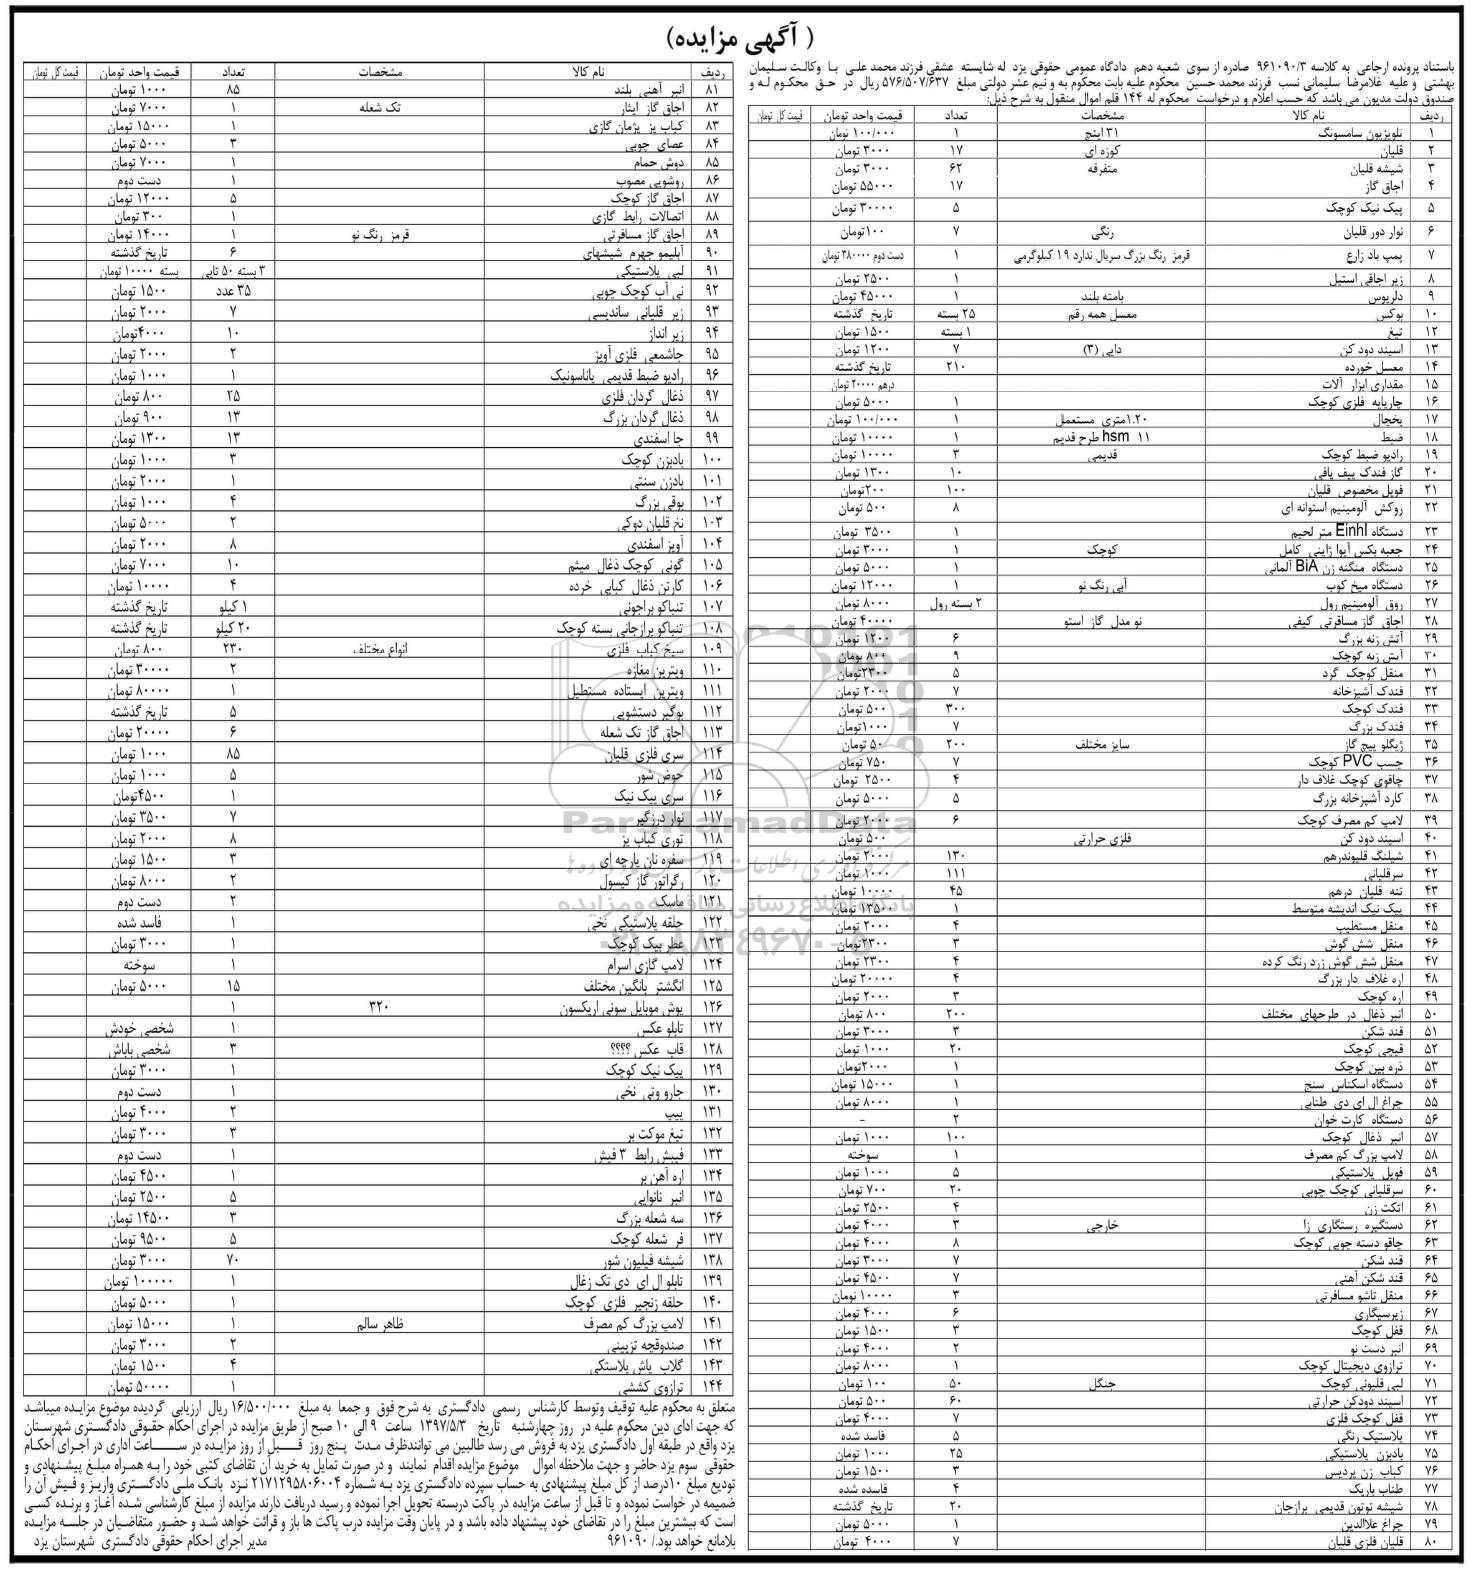 ( آگهی مزایده)
باستناد پرونده ارجاعی به کلاسه ۹۶۱۰۹۰/۳ صادره از سوی شعبه دهم دادگاه عمومی حقوقی یزد له شایسته عشقی فرزند محمد علی با وکالت سلیمان
بهشتی و علیه غلامرضا سلیمانی نسب فرزند محمد حسین محکوم علیه بابت محکوم به و نیم عشر دولتی مبلغ ۵۷۶/۵۰۷/۶۳۷ ریال در حق محکوم له و
صندوق دولت مدیون می باشد که حسب اعلام و درخواست محکوم له ۱۴۴ قلم اموال منقول به شرح ذیل:
ردیف نام کالا مشخصات تعداد قیمت واحد تومان قیمت کل تومان
۱ تلویزیون سامسونگ ۳۱ اینچ ۱ ۱۰۰/۰۰۰ تومان
۲ قلیان کوزه ای ۱۷ ۳۰۰۰ تومان
۳ شیشه قلیان متفرقه ۶۲ ۳۰۰۰ تومان
۴ اجاق گاز ۱۷ ۵۵۰۰۰ تومان
۵ پیک نیک کوچک ۵ ۳۰۰۰۰ تومان
۶ نوار دور قلیان رنگی ۷ ۱۰۰تومان
۷ پمپ باد زارع قرمز رنگ بزرگ سریال ندارد ۱۹ کیلوگرمی ۱ دست دوم ۳۸۰۰۰۰ تومان
۸ زیر اجاقی استیل ۱ ۲۵۰۰ تومان
۹ دلرپوس بامته بلند ۱ ۴۵۰۰۰ تومان
۱۰ بوکس معسل همه رقم ۲۵ بسته تاریخ گذشته
۱۲ تیغ ۱ بسته ۱۵۰۰ تومان
۱۳ اسپند دود کن دایی (۳) ۷ ۱۲۰۰ تومان
۱۴ معسل خورده ۲۱۰ تاریخ گذشته
۱۵ مقداری ابزار آلات درهم ۲۰۰۰۰ تومان
۱۶ چارپایه فلزی کوچک ۱ ۵۰۰۰ تومان
۱۷ یخچال ۱.۲۰متری مستعمل ۱ ۱۰۰/۰۰۰ تومان
۱۸ ضبط hsm ۱۱ طرح قدیم ۱ ۱۰۰۰۰ تومان
۱۹ رادیو ضبط کوچک قدیمی ۳ ۱۰۰۰۰ تومان
۲۰ گاز فندک پیف پافی ۱۰ ۱۳۰۰ تومان
۲۱ فویل مخصوص قلیان ۱۰۰ ۲۰۰تومان
۲۲ روکش آلومینیم استوانه ای ۸ ۵۰۰ تومان
۲۳ دستگاه Einhl متر لحیم ۱ ۳۵۰۰ تومان
۲۴ جعبه بکس آیوا ژاپنی کامل کوچک ۱ ۳۰۰۰ تومان
۲۵ دستگاه منگنه زن BiA آلمانی ۱ ۵۰۰۰ تومان
۲۶ دستگاه میخ کوب آبی رنگ نو ۱ ۱۲۰۰۰ تومان
۲۷ روق آلومینیم رول ۲ بسته رول ۸۰۰۰ تومان
۲۸ اجاق گاز مسافرتی کیفی نو مدل گاز استو ۴۰۰۰۰ تومان
۲۹ آتش زنه بزرگ ۶ ۱۲۰۰ تومان
۳۰ آتش زنه کوچک ۹ ۸۰۰ تومان
۳۱ منقل کوچک گرد ۵ ۲۳۰۰تومان
۳۲ فندک آشپزخانه ۷ ۲۰۰۰ تومان
۳۳ فندک کوچک ۳۰۰ ۵۰۰ تومان
۳۴ فندک بزرگ ۷ ۱۰۰۰تومان
۳۵ ژیگلو پیچ گاز سایز مختلف ۲۰۰ ۵۰ تومان
۳۶ چسب PVC کوچک ۷ ۷۵۰ تومان
۳۷ چاقوی کوچک غلاف دار ۴ ۲۵۰۰ تومان
۳۸ کارد آشپزخانه بزرگ ۵ ۵۰۰۰ تومان
۳۹ لامپ کم مصرف کوچک ۶ ۲۰۰۰ تومان
۴۰ اسپند دود کن فلزی حرارتی ۵۰۰ تومان
۴۱ شیلنگ قلیوندرهم ۱۳۰ ۲۰۰۰ تومان
۴۲ سرقلیانی ۱۱۱ ۱۰۰۰ تومان
۴۳ تنه قلیان درهم ۴۵ ۱۰۰۰۰ تومان
۴۴ پیک نیک اندیشه متوسط ۱ ۱۳۵۰۰ تومان
۴۵ منقل مستطیب ۴ ۲۰۰۰ تومان
۴۶ منقل شش گوش ۳ ۲۳۰۰تومان
۴۷ منقل شش گوش زرد رنگ کرده ۴ ۲۳۰۰ تومان
۴۸ اره غلاف دار بزرگ ۴ ۲۰۰۰۰ تومان
۴۹ اره کوچک ۳ ۲۰۰۰ تومان
۵۰ انبر ذغال در طرحهای مختلف ۲۰۰ ۸۰۰ تومان
۵۱ قند شکن ۳ ۳۰۰۰ تومان
۵۲ قیچی کوچک ۲۰ ۱۰۰۰ تومان
۵۳ ذره بین کوچک ۱ ۲۰۰۰تومان
۵۴ دستگاه اسکناس سنج ۱ ۱۵۰۰۰ تومان
۵۵ چراغ ال ای دی طنابی ۱ ۸۰۰۰ تومان
۵۶ دستگاه کارت خوان ۲ -
۵۷ انبر ذغال کوچک ۱۰۰ ۱۰۰۰ تومان
۵۸ لامپ بزرگ کم مصرف ۱ سوخته
۵۹ فویل پلاستیکی ۵ ۱۰۰۰ تومان
۶۰ سرقلیانی کوچک چوبی ۲۰ ۷۰۰ تومان
۶۱ اتکت زن ۴ ۲۵۰۰ تومان
۶۲ دستگیره رستگاری زا خارجی ۳ ۴۰۰۰ تومان
۶۳ چاقو دسته چوبی کوچک ۸ ۴۰۰۰ تومان
۶۴ قند شکن ۷ ۳۰۰۰ تومان
۶۵ قند شکن آهنی ۷ ۴۵۰۰ تومان
۶۶ منقل تاشو مسافرتی ۳ ۱۰۰۰۰ تومان
۶۷ زیرسیگاری ۶ ۴۰۰۰ تومان
۶۸ قفل کوچک ۳ ۱۵۰۰ تومان
۶۹ انبر دست نو ۲ ۴۰۰۰ تومان
۷۰ ترازوی دیجیتال کوچک ۱ ۸۰۰۰ تومان
۷۱ لبی قلیونی کوچک جنگل ۵۰ ۱۰۰ تومان
۷۲ اسپند دودکن حرارتی ۶۰ ۵۰۰ تومان
۷۳ قفل کوچک فلزی ۷ ۴۰۰۰ تومان
۷۴ پلاستیک رنگی ۵ فاسد شده
۷۵ بادبزن پلاستیکی ۲۵ ۱۰۰۰ تومان
۷۶ کباب زن پردیس ۳ ۱۵۰۰ تومان
۷۷ طناب باریک ۴ فاسده شده
۷۸ شیشه توتون قدیمی برازجان ۲۰ تاریخ گذشته
۷۹ چراغ علاالدین ۱ ۵۰۰۰ تومان
۸۰ قلیان فلزی قلیان ۷ ۴۰۰۰ تومان
ردیف نام کالا مشخصات تعداد قیمت واحد تومان قیمت کل تومان
۸۱ انبر آهنی بلند ۸۵ ۱۰۰۰ تومان
۸۲ اجاق گاز ایثار تک شعله ۱ ۷۰۰۰ تومان
۸۳ کباب پز پژمان گازی ۱ ۱۵۰۰۰ تومان
۸۴ عصای چوبی ۳ ۵۰۰۰ تومان
۸۵ دوش حمام ۱ ۷۰۰۰ تومان
۸۶ روشویی مصوب ۱ دست دوم
۸۷ اجاق گاز کوچک ۵ ۱۲۰۰۰ تومان
۸۸ اتصالات رابط گازی ۱ ۳۰۰ تومان
۸۹ اجاق گاز مسافرتی قرمز رنگ نو ۱ ۱۴۰۰۰ تومان
۹۰ آبلیمو جهرم شیشهای ۶ تاریخ گذشته
۹۱ لبی پلاستیکی ۳ بسته ۵۰ تایی بسته ۱۰۰۰۰ تومان
۹۲ نی آب کوچک چوبی ۳۵ عدد ۱۵۰۰ تومان
۹۳ زیر قلیانی ساندیسی ۷ ۲۰۰۰ تومان
۹۴ زیر انداز ۱۰ ۴۰۰۰تومان
۹۵ جاشمعی فلزی آویز ۲ ۲۰۰۰ تومان
۹۶ رادیو ضبط قدیمی پاناسونیک ۱ ۱۰۰۰ تومان
۹۷ ذغال گردان فلزی ۲۵ ۸۰۰ تومان
۹۸ ذغال گردان بزرگ ۱۳ ۹۰۰ تومان
۹۹ جا اسفندی ۱۳ ۱۳۰۰ تومان
۱۰۰ بادبزن کوچک ۳ ۱۰۰۰ تومان
۱۰۱ بادزن سنتی ۱ ۲۰۰۰ تومان
۱۰۲ بوقی بزرگ ۴ ۱۰۰۰ تومان
۱۰۳ نخ قلیان دوکی ۲ ۵۰۰۰ تومان
۱۰۴ آویز اسفندی ۸ ۲۰۰۰ تومان
۱۰۵ گونی کوچک ذغال میثم ۱۰ ۷۰۰۰ تومان
۱۰۶ کارتن ذغال کبابی خرده ۴ ۱۰۰۰۰ تومان
۱۰۷ تنباکو براجونی ۱ کیلو تاریخ گذشته
۱۰۸ تنباکو برازجانی بسته کوچک ۲۰ کیلو تاریخ گذشته
۱۰۹ سیخ کباب فلزی انواع مختلف ۲۳۰ ۸۰۰ تومان
۱۱۰ ویترین مغازه ۲ ۳۰۰۰۰ تومان
۱۱۱ ویترین ایستاده مستطیل ۱ ۸۰۰۰۰ تومان
۱۱۲ بوگیر دستشویی ۵ تاریخ گذشته
۱۱۳ اجاق گاز تک شعله ۶ ۲۰۰۰۰ تومان
۱۱۴ سری فلزی قلیان ۸۵ ۱۰۰۰ تومان
۱۱۵ حوض شور ۵ ۱۰۰۰ تومان
۱۱۶ سری پیک نیک ۱ ۴۵۰۰تومان
۱۱۷ نوار درزگیر ۷ ۳۵۰۰ تومان
۱۱۸ توری کباب پز ۸ ۲۰۰۰ تومان
۱۱۹ سفره نان پارچه ای ۳ ۱۵۰۰ تومان
۱۲۰ رگراتور گاز کپسول ۲ ۸۰۰۰ تومان
۱۲۱ ماسک ۲ دست دوم
۱۲۲ حلقه پلاستیکی نخی ۱ فاسد شده
۱۲۳ عطر پیک کوچک ۱ ۳۰۰۰ تومان
۱۲۴ لامپ گازی اسرام ۱ سوخته
۱۲۵ انگشتر بانگین مختلف ۱۵ ۵۰۰۰ تومان
۱۲۶ پوش موبایل سونی اریکسون ۳۲۰ ۱
۱۲۷ تابلو عکس ۱ شخصی خودش
۱۲۸ قاب عکس ؟؟؟؟ ۳ شخصی باباش
۱۲۹ پیک نیک کوچک ۱ ۳۰۰۰ تومان
۱۳۰ جارو وتی نخی ۱ دست دوم
۱۳۱ پیپ ۲ ۴۰۰۰ تومان
۱۳۲ تیغ موکت بر ۳ ۳۰۰۰ تومان
۱۳۳ فیبش رابط ۳ فیش ۱ دست دوم
۱۳۴ اره آهن بر ۱ ۴۵۰۰ تومان
۱۳۵ انبر نانوایی ۵ ۲۵۰۰ تومان
۱۳۶ سه شعله بزرگ ۳ ۱۴۵۰۰ تومان
۱۳۷ فر شعله کوچک ۵ ۹۵۰۰ تومان
۱۳۸ شیشه فیلیون شور ۷۰ ۳۰۰۰ تومان
۱۳۹ تابلو ال ای دی تک زغال ۱ ۱۰۰۰۰۰ تومان
۱۴۰ حلقه زنجیر فلزی کوچک ۱ ۵۰۰۰ تومان
۱۴۱ لامپ بزرگ کم مصرف ظاهر سالم ۱ ۱۵۰۰۰ تومان
۱۴۲ صندوقچه تزیینی ۲ ۳۰۰۰ تومان
۱۴۳ گلاب پاش پلاستکی ۴ ۱۵۰۰ تومان
۱۴۴ ترازوی کششی ۱ ۵۰۰۰۰ تومان
متعلق به محکوم علیه توقیف وتوسط کارشناس رسمی دادگستری به شرح فوق و جمعا به مبلغ ۱۶/۵۰۰/۰۰۰ ریال ارزیابی گردیده موضوع مزایده میباشد
که جهت ادای دین محکوم علیه در روز چهارشنبه تاریخ ۱۳۹۷/۵/۳ ساعت ۹ الی ۱۰ صبح از طریق مزایده در اجرای احکام حقوقی دادگستری شهرستان
یزد واقع در طبقه اول دادگستری یزد به فروش می رسد طالبین می توانندظرف مدت پنج روز قبل از روز مزایده در ساعت اداری در اجرای احکام
حقوقی سوم یزد حاضر و جهت ملاحظه اموال موضوع مزایده اقدام نمایند و در صورت تمایل به خرید آن تقاضای کتبی خود را به همراه مبلغ پیشنهادی و
تودیع مبلغ ۱۰درصد از کل مبلغ پیشنهادی به حساب سپرده دادگستری یزد به شماره ۲۱۷۱۲۹۵۸۰۶۰۰۴ نزد بانک ملی دادگستری واریز و فیش آن را
ضمیمه در خواست نموده و تا قبل از ساعت مزایده در پاکت دربسته تحویل اجرا نموده و رسید دریافت دارند مزایده از مبلغ کارشناسی شده آغاز و برنده کسی
است که بیشترین مبلغ را در تقاضای خود پیشنهاد داده باشد و در پایان وقت مزایده درب پاکت ها باز و قرائت خواهد شد و حضور متقاضیان در جلسه مزایده
بلامانع خواهد بود./ ۹۶۱۰۹۰ مدیر اجرای احکام حقوقی دادگستری شهرستان یزد
ParsNamadData
پایگاه اطلاع رسانی مناقصه و مزایده
۰۲۱-۸۸۳۴۹۶۷۰-۵